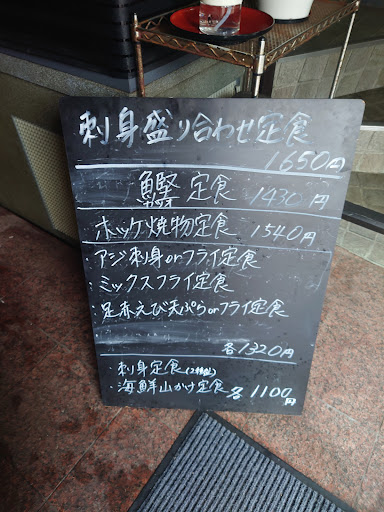 刺身盛り合わせ定食
1650円
鰹定食 1430円
カツオ
ホッケ焼物定食 1540円
・アジ刺身orフライ定食
・ミックスフライ定食
・足赤えび天ぷらorフライ定食
各1320円
・刺身定食
・海鮮山かけ定食 各1100円